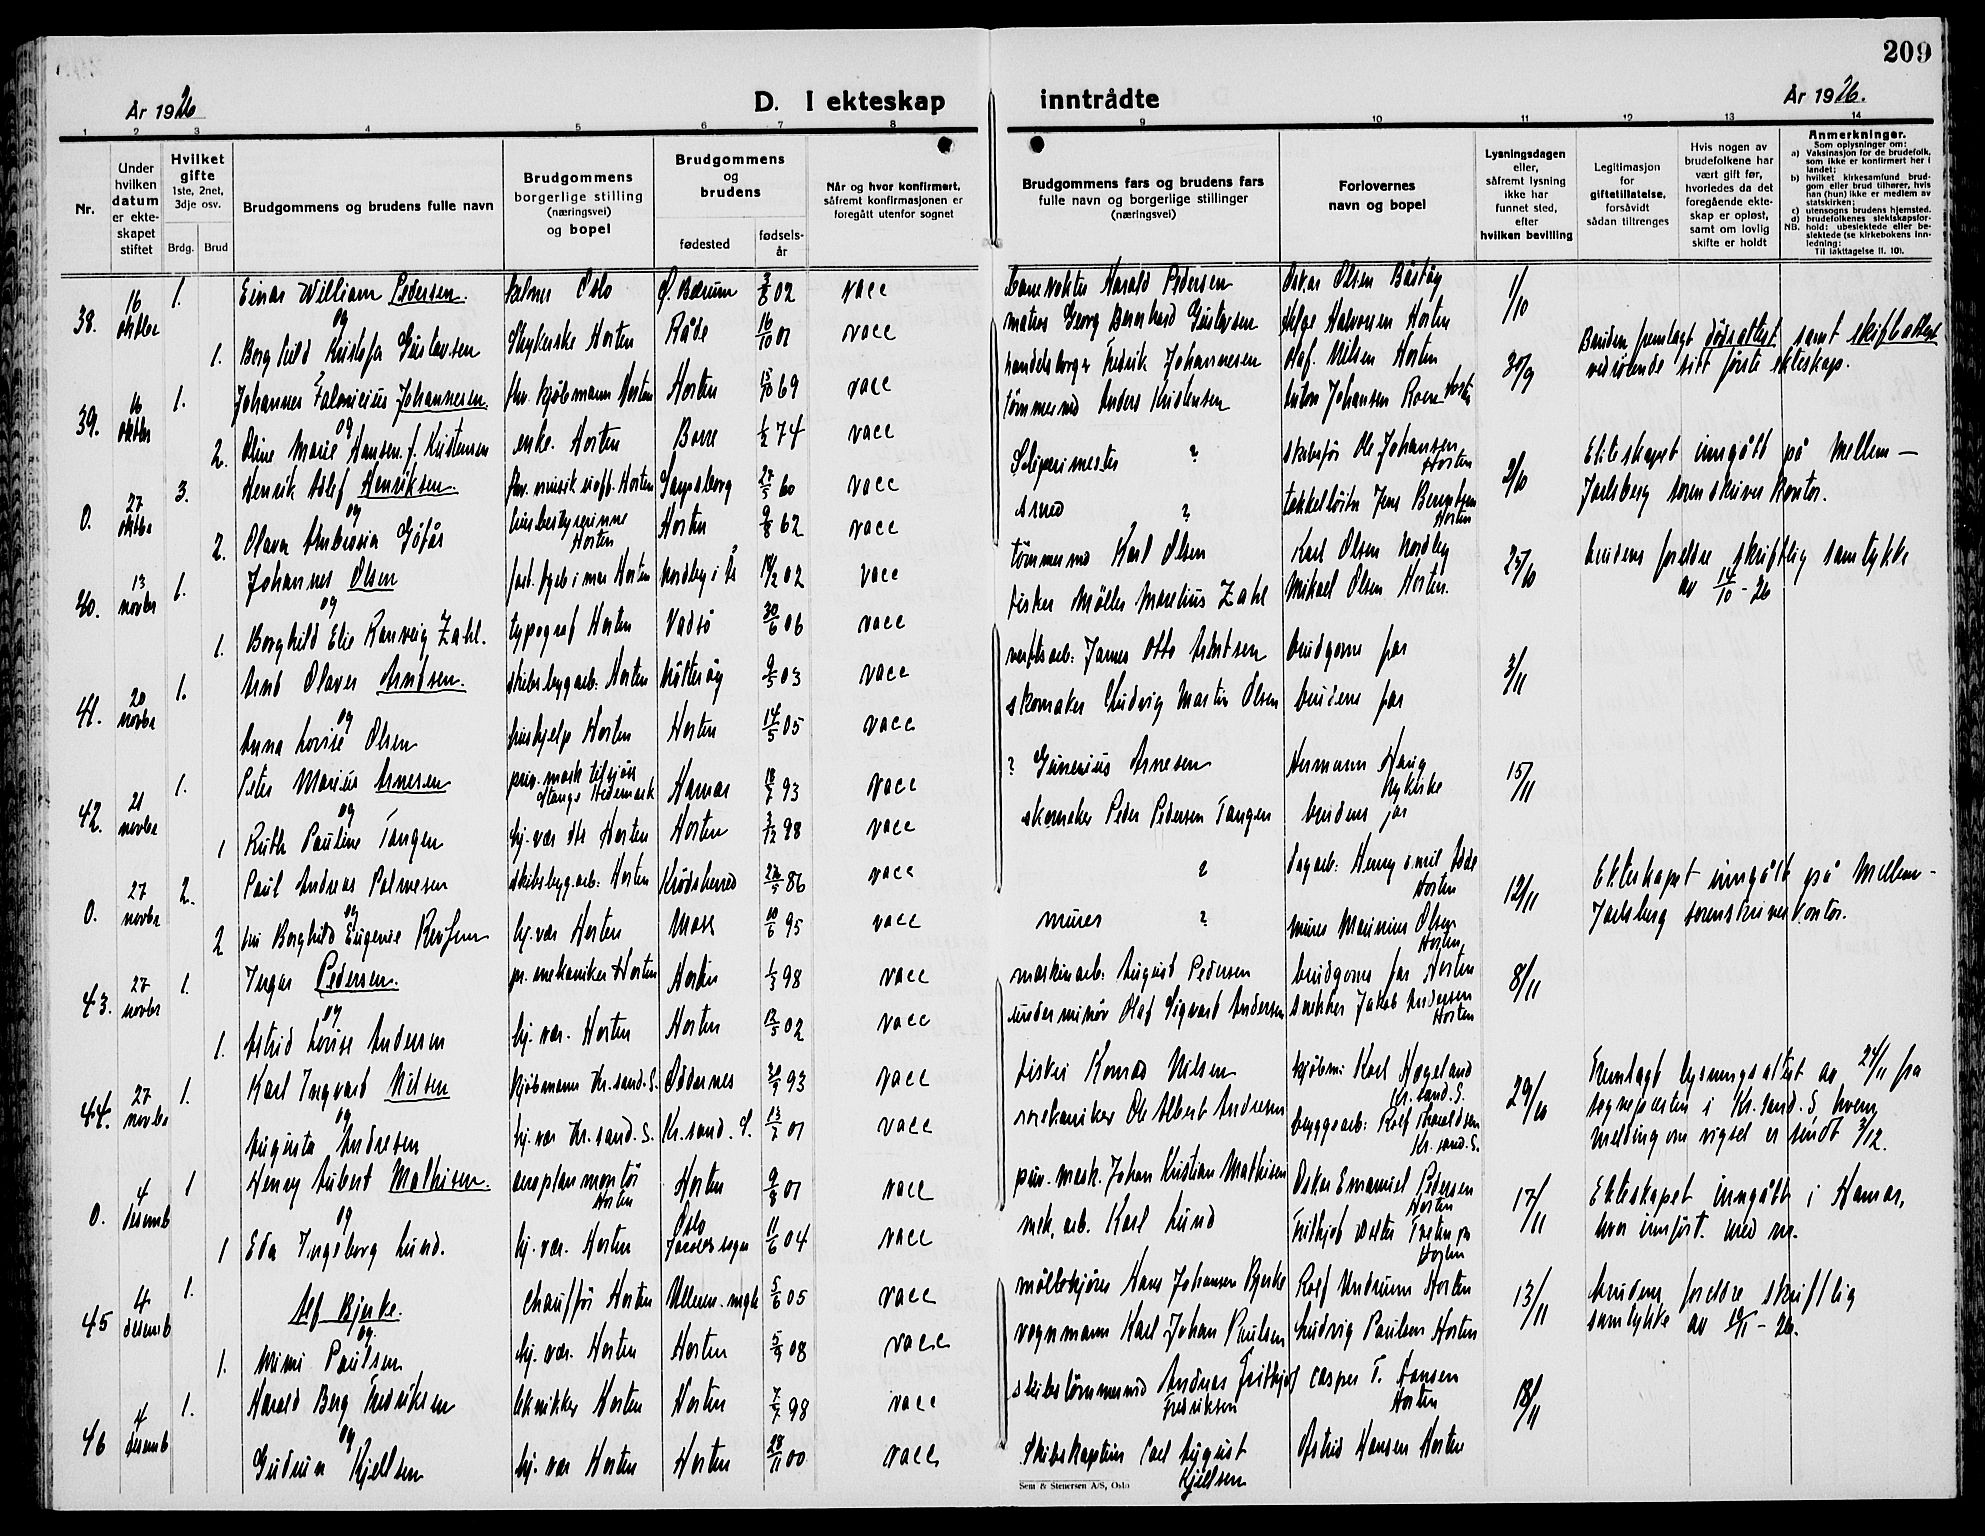 209
År 1926
D. I ekteskap inntrådte
År 1926.
1 2 3 4 5 6 7 8 9 10 11 12 13 14
Nr.
Under hvilken datum er ekteskapet stiftet
Hvilket gifte
1ste, 2net, 3dje osv.
Brdg. Brud
Brudgommens og brudens fulle navn
Brudgommens borgerlige stilling (næringsvei) og bopel
Brudgommens og brudens
fødested fødselsår
Når og hvor konfirmert, såfremt konfirmasjonen er foregått utenfor sognet
Brudgommens fars og brudens fars fulle navn og borgerlige stillinger (næringsvei)
Forlovernes navn og bopel
Lysningsdagen eller, såfremt lysning ikke har funnet sted, efter hvilken bevilling
Legitimasjon for giftetillatelse, forsåvidt sådan tiltrenges
Hvis nogen av brudefolkene har vært gift før, hvorledes da det foregående ekteskap er opløst, samt om lovlig skifte er holdt
Anmerkninger.
Som oplysninger om:
a) Vaksinasjon for de brudefolk, som ikke er konfirmert her i landet;
b) hvilket kirkesamfund brudgom eller brud tilhører, hvis han (hun) ikke er medlem av statskirken;
c) utensogns brudens hjemsted.
d) brudefolkenes slektskapsforhold: ubeslektede eller beslektede (se kirkebokens innledning:
NB.
Til iakttagelse II. 10).
38. 16 oktbr 1. Einar William Pedersen. Oslo Ø. Bærum 3/8 02 vacc banevokter Harald Pedersen Oskar Olsen Båstøy 1/10
og
1. Borghild Kristofa Gustavsen Horten Råde 16/10 01 vacc Georg Bernhard Gustavsen Helge Halvorsen Horten
39. 16 oktbr 1. Johannes Johannesen. fhv. kjøbmann Horten Horten 15/10 69 vacc Fredrik Johannesen Olaf Nilsen Horten 30/9 Bruden fremlagt dødsattest samt skifteattest
vedrørende sitt første ekteskap.
og
2. Oline Marie Hansen f. Kristensen enke. Horten Borre 1/2 74 vacc tømmermd Anders Kristensen Anton Johansen Roen Horten
0. 27 oktbr 3. Henrik Adolf Henriksen. Horten Sarpsborg 27/5 60 vacc ? Ole Johansen Horten 2/10 Ekteskapet inngått på Mellem-
Jarlsberg sorenskriverkontor.
og
2. Olava Ambrosia husbestyrerinne Horten Horten 9/8 62 vacc smed ? Jens Berntsen Horten
40. 13 novbr 1. Johannes Olsen Horten Nordby i Ås 14/2 02 vacc tømmermd Karl Olsen Karl Olsen Nordby 25/10 brudens foreldre skriftlig samtykke
av 14/10-26
og
1. Borghild Elie Ranveig Zahl. typograf Horten Vadsö 30/6 06 vacc fisker Møller Marelius Zahl Mikael Olsen Horten.
41. 20 novbr 1. Arnt Olaves Arntsen. skibsbygarb. Horten Nøtterøy 9/5 03 vacc verftsarb: James Otto Arntsen brudgoms far 3/11
og
Anna Lovise Olsen hushjelp Horten Horten 14/5 05 vacc skomaker Ludvig Martin Olsen brudens far
42. 21 novbr 1. Peter Marius Arnesen Stange Hedemark Hamar 18/7 93 vacc ? Gunerius Arnesen Hermann Haug Nykirke 15/11
og
1 Ruth Pauline Tangen hj. vær. Horten Horten 3/12 98 vacc skomaker Peder Pedersen Tangen brudens far
0. 27 novbr 2. Paul Andreas skibsbyg.arb. Horten Krødsherred 22/5 86 vacc ? Henry Emil Horten 12/11 Ekteskapet inngått på Mellem-
Jarlsberg sorenskriverkontor.
og
2 Borghild Eugenie hj. vær Horten Moss 10/6 95 vacc murer ? murer Marinius Olsen Horten
43. 27 novbr 1. Ingar Pedersen. mekaniker Horten Horten 1/3 98 vacc maskinarb. August Pedersen brudgoms far Horten 8/11
og
1. Astrid Lovise Andersen hj. vær. Horten Horten 12/5 02 vacc underminør Olaf Sigvart Andersen snekker Jakob Andersen Horten
44. 27 novbr 1. Karl Ingvart Nilsen kjøbmann Kr.sand.S. Oddernes 30/9 93 vacc fisker Konrad Nilsen kjøbm: Karl Høgeland Kr.sand.S. 29/10 Fremlagt lysningsattest av 24/11 fra
sognepresten i Kr.sand.S, hvem
melding om vigsel er sendt 3/12.
og
Augusta Andresen hj. vær Kr.sand.S. Kr.sand.S. 13/7 01 vacc mekaniker Ole Albert Andresen byggearb: Rolf Haraldsen Kr.sand.S.
0. 4 desemb 1 Henry Aubert Mathisen. aeroplanmontør Horten Horten 9/8 01 vacc Johan Kristian Mathisen Oskar Emanuel Pedersen Horten 17/11 Ekteskapet inngått i Hamar,
hvor innført. med nr.
og
1 Eda Ingeborg Lund. hj. vær. Horten Oslo 11/6 04 vacc mek. arb. Karl Lund Fridtjof Horten
45 4 desemb 1. Alf Bjerke. Chauffør Horten 5/6 05 vacc Hans Johansen Bjerke Rolf Andrum Horten 13/11 brudens foreldre skriftlig
samtykke av 10/11-26.
og
1. Mimi Paulsen hj. vær. Horten Horten 5/9 08 vacc vognmann Karl Johan Paulsen Ludvig Paulsen Horten
46 4 desemb 1. Harald Berg Fredriksen tekniker Horten Horten 7/7 98 vacc skibstømmermd Andreas Fridtjof Fredriksen Casper T. Hansen Horten 18/11
og
Gudrun Kjellsen hj. vær Horten Horten 28/11 00 vacc Skibskaptein Carl August Kjellsen Astrid Hansen Horten
Sem & Stenersen A/S, Oslo